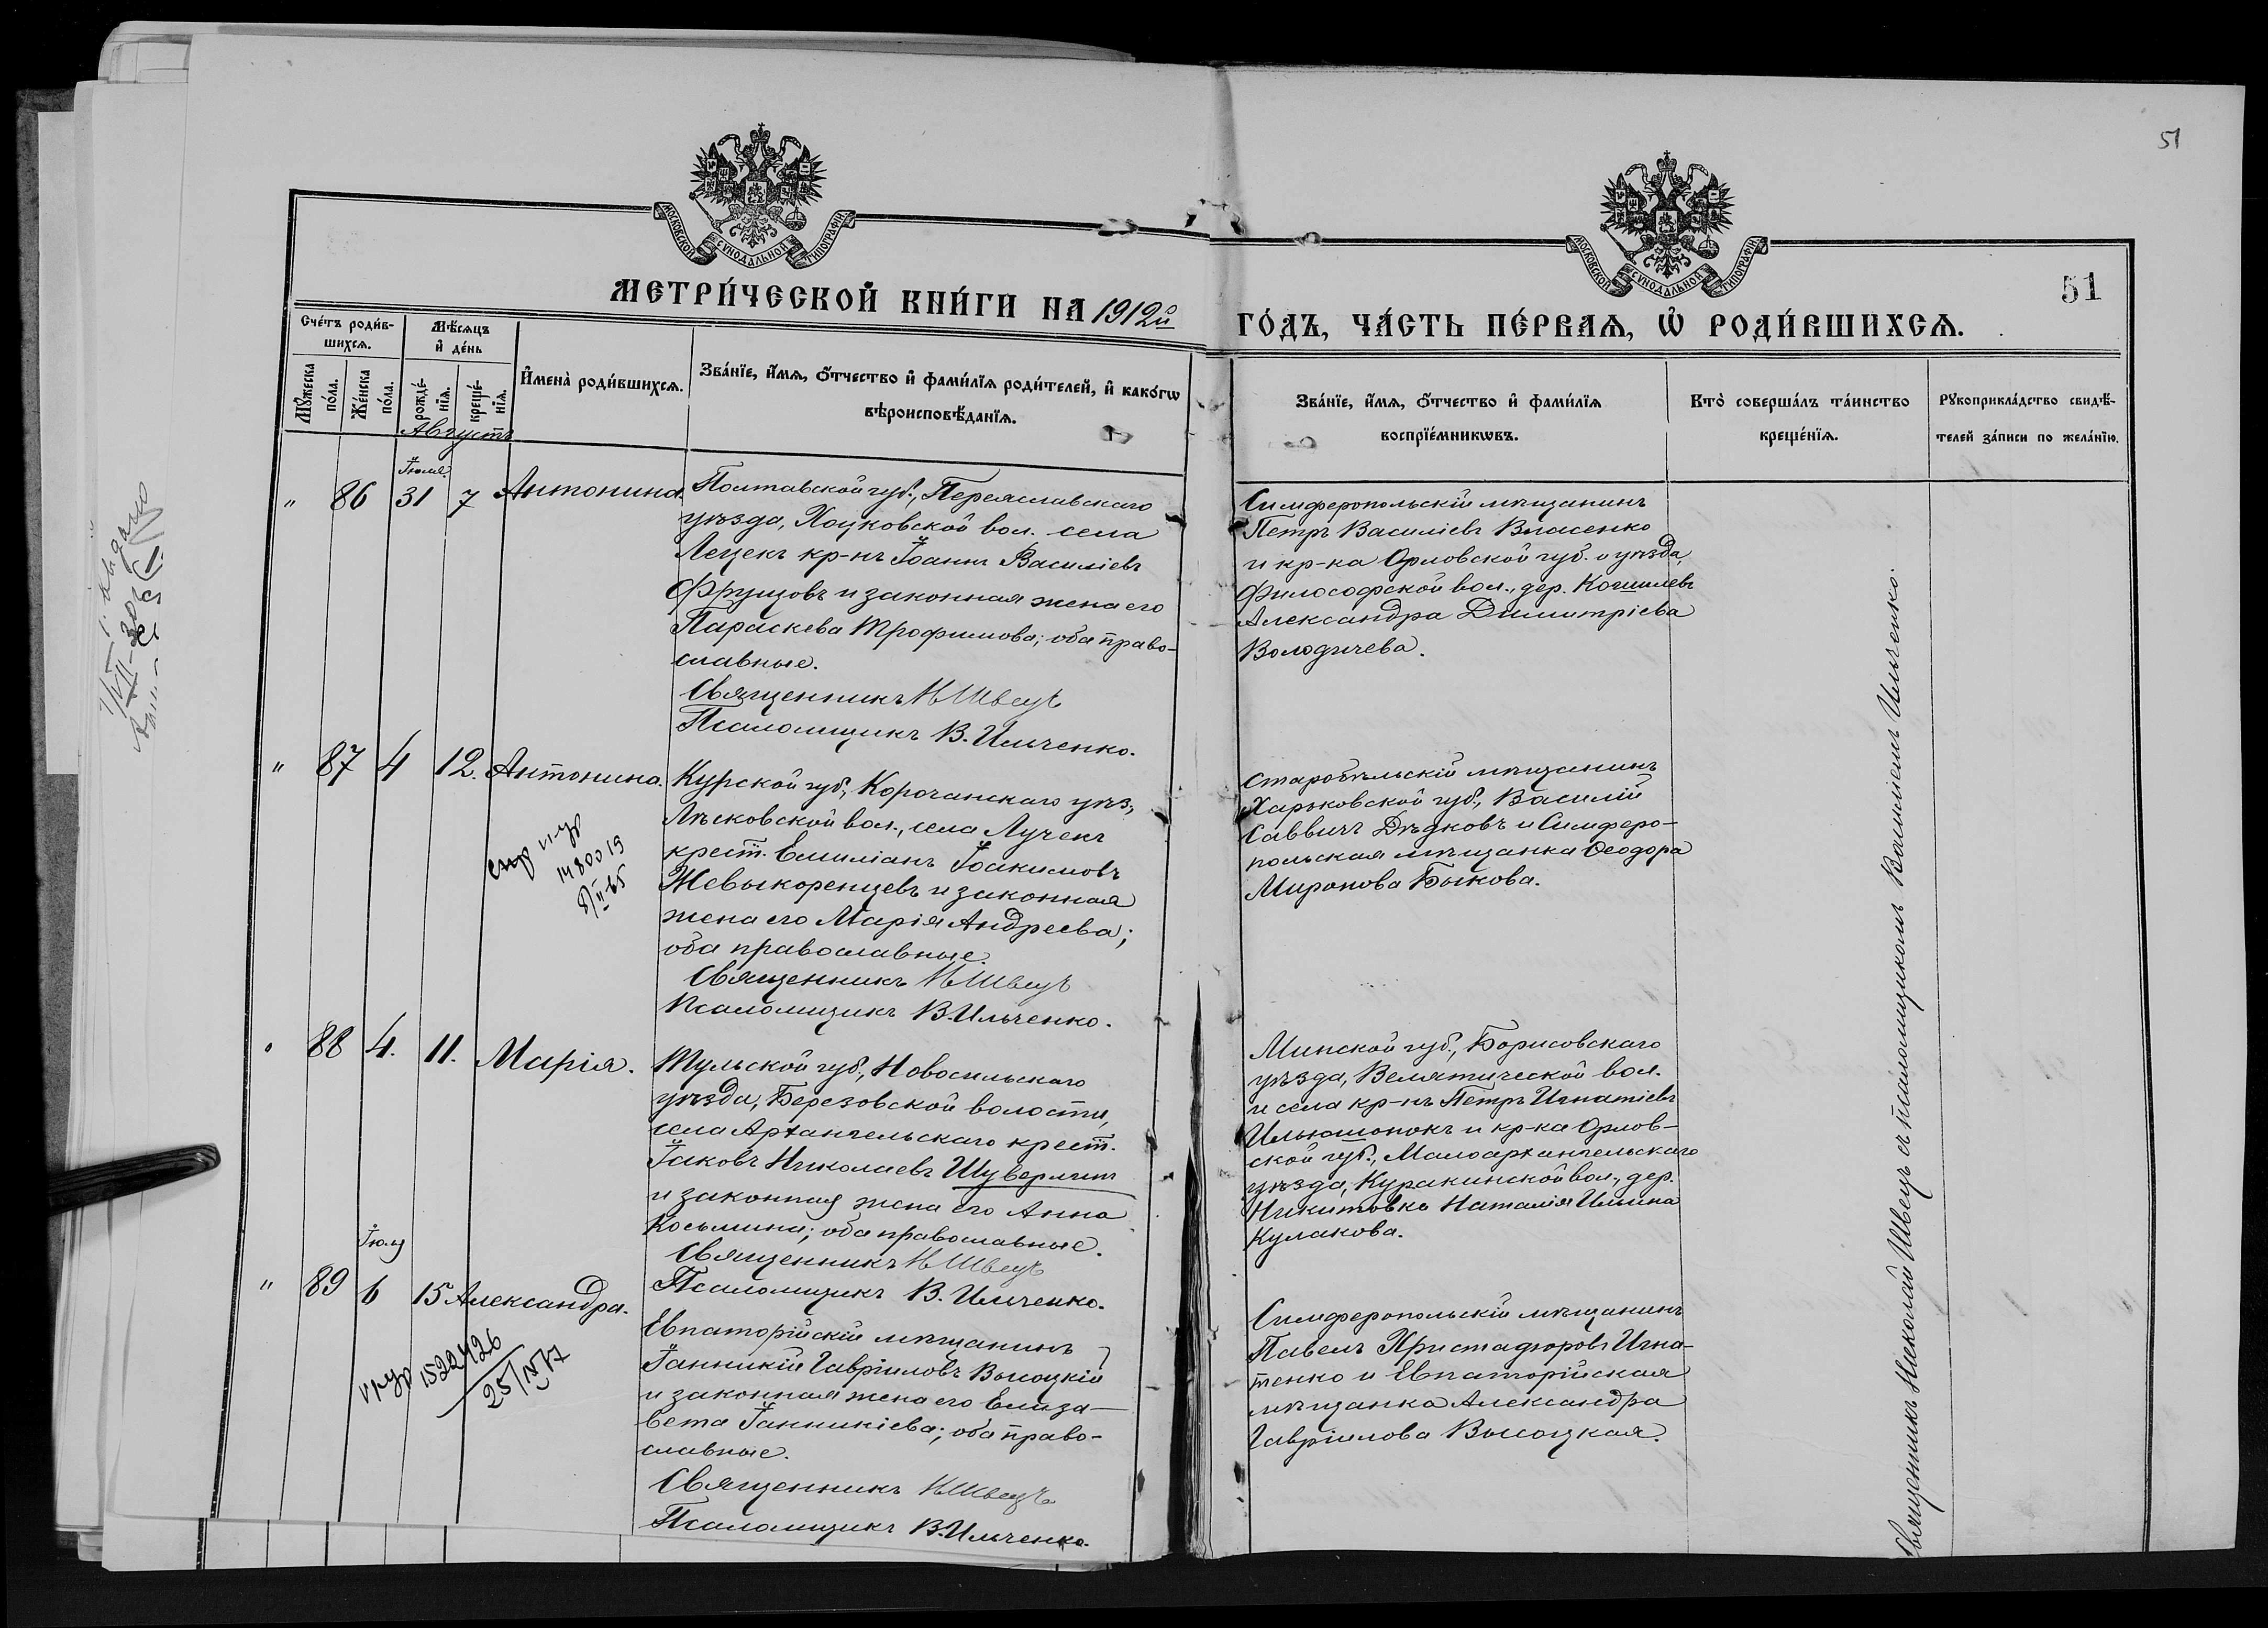 51
МОСКОВСКОЙ СѴНОДАЛЬНОЙ ТИПОГРАФІИ
МОСКОВСКОЙ СѴНОДАЛЬНОЙ ТИПОГРАФІИ
51
МЕТРИ́ЧЕСКОЙ КНИ́ГИ НА 1912й
ГО́ДЪ, ЧА́СТЬ ПЕ́РВАѦ, Ѡ҆ РОДИ́ВШИХСѦ.
Сче́тъ роди́в-
шихсѧ.
Мѣ́сѧцъ
и҆ де́нь
Мꙋ́жеска
по́ла.
Же́нска
по́ла.
рожде́-
нїѧ.
креще́-
нїѧ.
И҆мена̀ роди́вшихсѧ.
Зва́нїе, и҆́мѧ, ѻ҆́тчество и҆ фами́лїѧ роди́телей, и҆ како́гѡ
вѣроисповѣ́данїѧ.
Зва́нїе, и҆́мѧ, ѻ҆́тчество и҆ фами́лїѧ
воспрїе́мникѡвъ.
Кто̀ соверша́лъ та́инство
креще́нїѧ.
Рꙋкоприкла́дство свидѣ́-
телей за́писи по жела́нїю.
Августъ
Іюля
" 86 31 7 Антонина.
Полтавской губ., Переяславскаго
уѣзда, Хоцковской вол. села
Лецекъ кр-нъ Іоаннъ Василіевъ
Фрунзовъ и законная жена его
Параскева Трофимова; оба право-
славные.
Священникъ Н Швецъ
Псаломщикъ В. Ильченко.
Симферопольскій мѣщанинъ
Петръ Василіевъ Власенко
и кр-ка Орловской губ. и уѣзда,
Философской вол., дер. Кошилевъ
Александра Димитріева
Володичева.
" 87 4 12. Антонина.
Курской губ., Корочанскаго уѣз,
Лѣсковской вол., села Лученъ
крест. Емиліанъ Іоакимовъ
Жевыкоренцевъ и законная
жена его Марія Андреева;
оба православные.
Священникъ Н Швецъ
Псаломщикъ В. Ильченко.
Старобѣльскій мѣщанинъ
Харьковской губ., Василій
Саввичъ Дѣдковъ и Симферо-
польская мѣщанка Ѳеодора
Миронова Быкова.
" 88 4. 11. Марія.
Тульской губ., Новосильскаго
уѣзда, Березовской волости,
села Архангельскаго крест.
Іаковъ Николаевъ Шуверлинъ
и законная жена его Анна
Косьмина; оба православные.
Священникъ Н Швецъ
Псаломщикъ В. Ильченко.
Минской губ., Борисовскаго
уѣзда, Велятической вол.
и села кр-нъ Петръ Игнатіевъ
Ильюшонокъ и кр-ка Орлов-
ской губ., Малоархангельскаго
уѣзда, Куракинской вол., дер.
Никитовка Наталія Ильина
Кулакова.
Іюля
" 89 6 15 Александра.
1522426
Евпаторійскій мѣщанинъ
Іанникій Гавріиловъ Высоцкій
и законная жена его Елиза-
вета Іанникіева; оба право-
славные.
Священникъ Н Швецъ
Псаломщикъ В. Ильченко.
Симферопольскій мѣщанинъ
Павелъ Христафоровъ Игна-
тенко и Евпаторійская
мѣщанка Александра
Гавріилова Высоцкая.
Священникъ Николай Швецъ съ псаломщикомъ Василіемъ Ильченко.